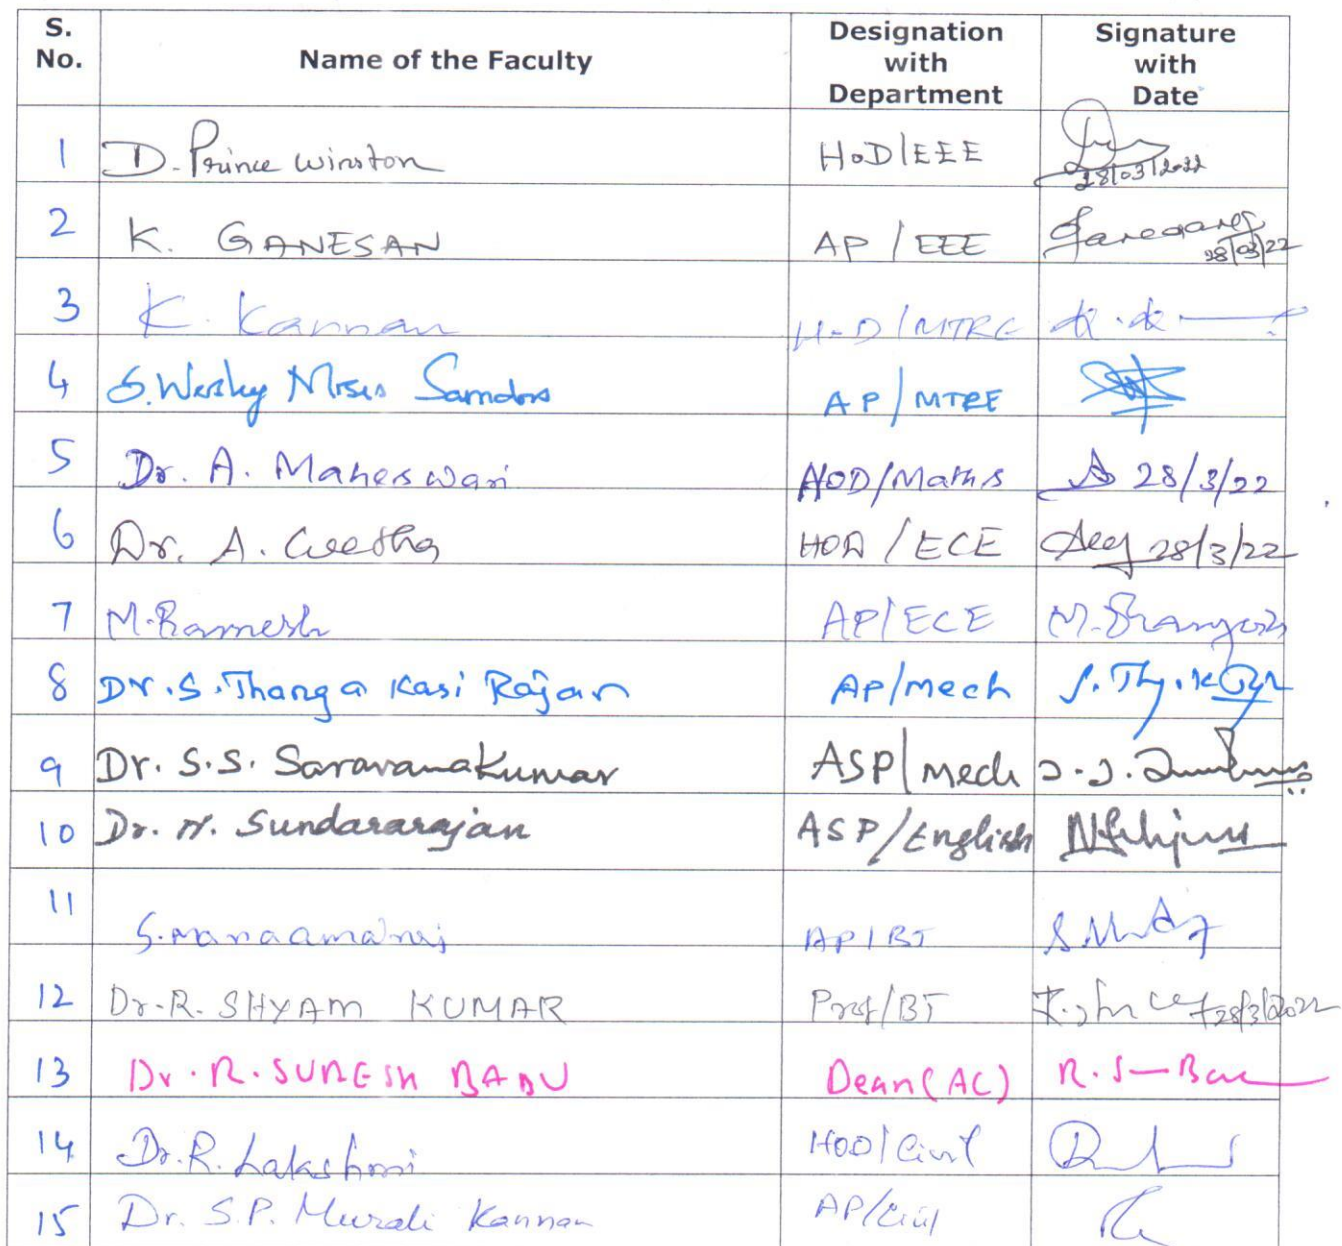 S. No. Name of the Faculty Designation with Department Signature with Date
1 D. Prince Winston HoD/EEE 28/03/2022
2 K. GANESAN AP / EEE 28/03/22
3 K. Kannan HoD/MTRE
4 S. Wesley Moses Samdoss AP/MTRE
5 Dr. A. Maheswari HOD/Maths 28/3/22
6 Dr. A. Geetha HOD / ECE 28/3/22
7 M. Ramesh AP/ECE
8 Dr. S. Thanga Kasi Rajan AP/Mech
9 Dr. S.S. SaravanaKumar ASP/Mech
10 Dr. N. Sundararajan ASP/English
11 AP/BT
12 Dr. R. SHYAM KUMAR Prof/BT 28/3/2022
13 Dr. R. SURESH BABU Dean(AC)
14 Dr. R. Lakshmi HOD/Civil
15 Dr. S.P. Murali Kannan AP/Civil